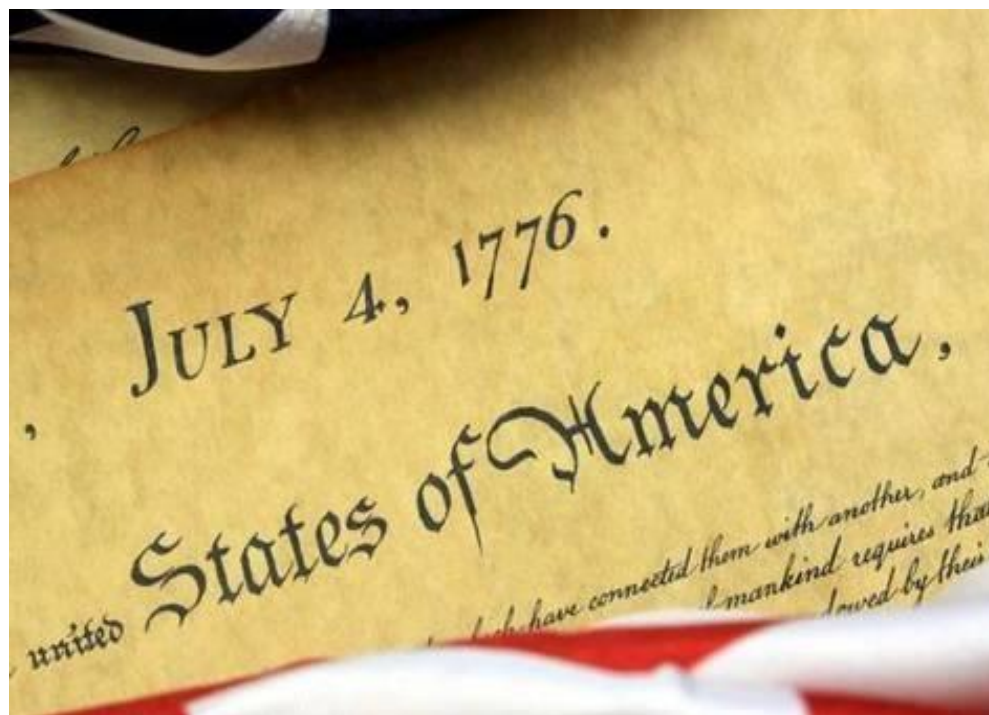 , JULY 4, 1776.
united States of America,
have connected them with another, and
mankind requires
by their